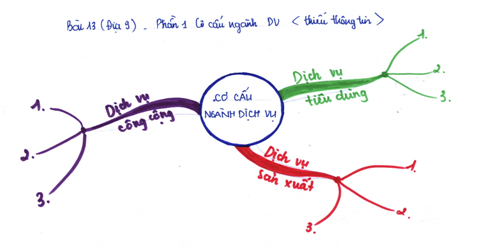 Bài 13 (Địa 9) - Phần 1 Cơ cấu ngành DV < thiếu thông tin >
CƠ CẤU
NGÀNH DỊCH VỤ
Dịch vụ
tiêu dùng
1.
2.
3.
Dịch vụ
sản xuất
1.
2.
3.
Dịch vụ
công cộng
1.
2.
3.